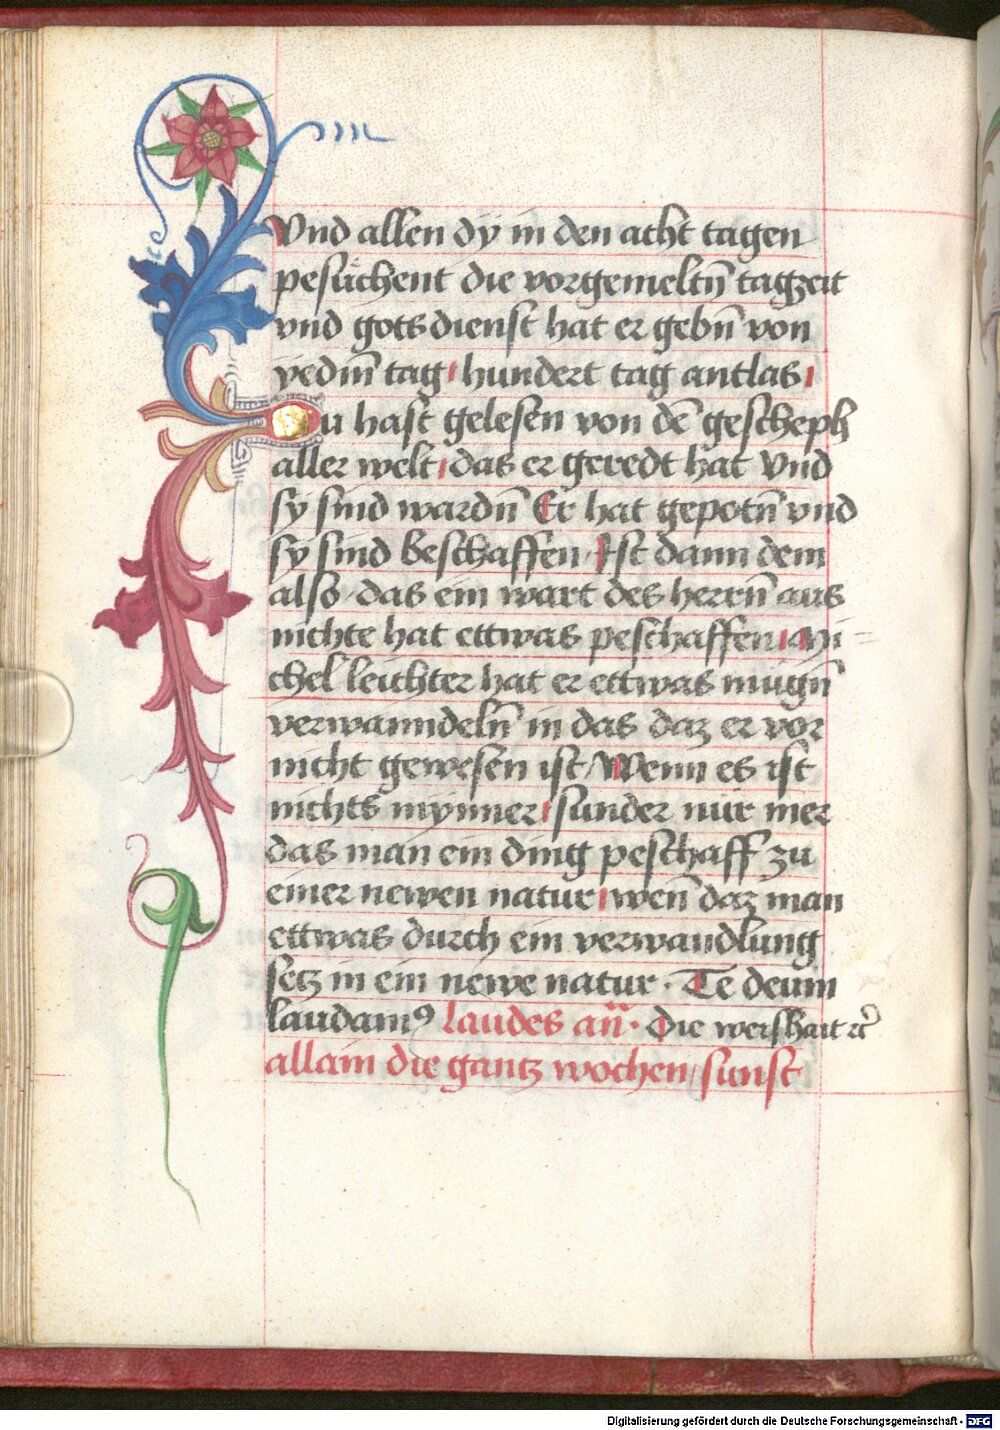 Vnd allen dÿ in den acht tagen
pesuͤchent die vorgemeltn̄ tagzeit
vnd gotsdienst hat er gebn̄ von
yedm̄ tag hundert tag antlas
Du hast gelesen von dē gescheph
aller welt das er geredt hat Vnd
sy sind wardn̄ Er hat gepotn̄ vnd
sy sind beschaffen. Ist dann dem
also. das ein wart des herrn̄ aus
nichte hat ettwas peschaffen Mi=
chel leichter hat er ettwas mugn̄
verwanndeln̄ in das daz er vor
nicht gewesen ist, Wenn es ist
nichts mynner sunder nur mer
das man ein ding peschaff zu
einer newen natur wen̄ daz man
ettwas durch ein verwandlung
setz in ein newe natur. Te deum
laudamꝰ Laudes an̄. Die weishait ꝛc̄
allain die gantz wochen, sunst
Digitalisierung gefördert durch die Deutsche Forschungsgemeinschaft - DFG